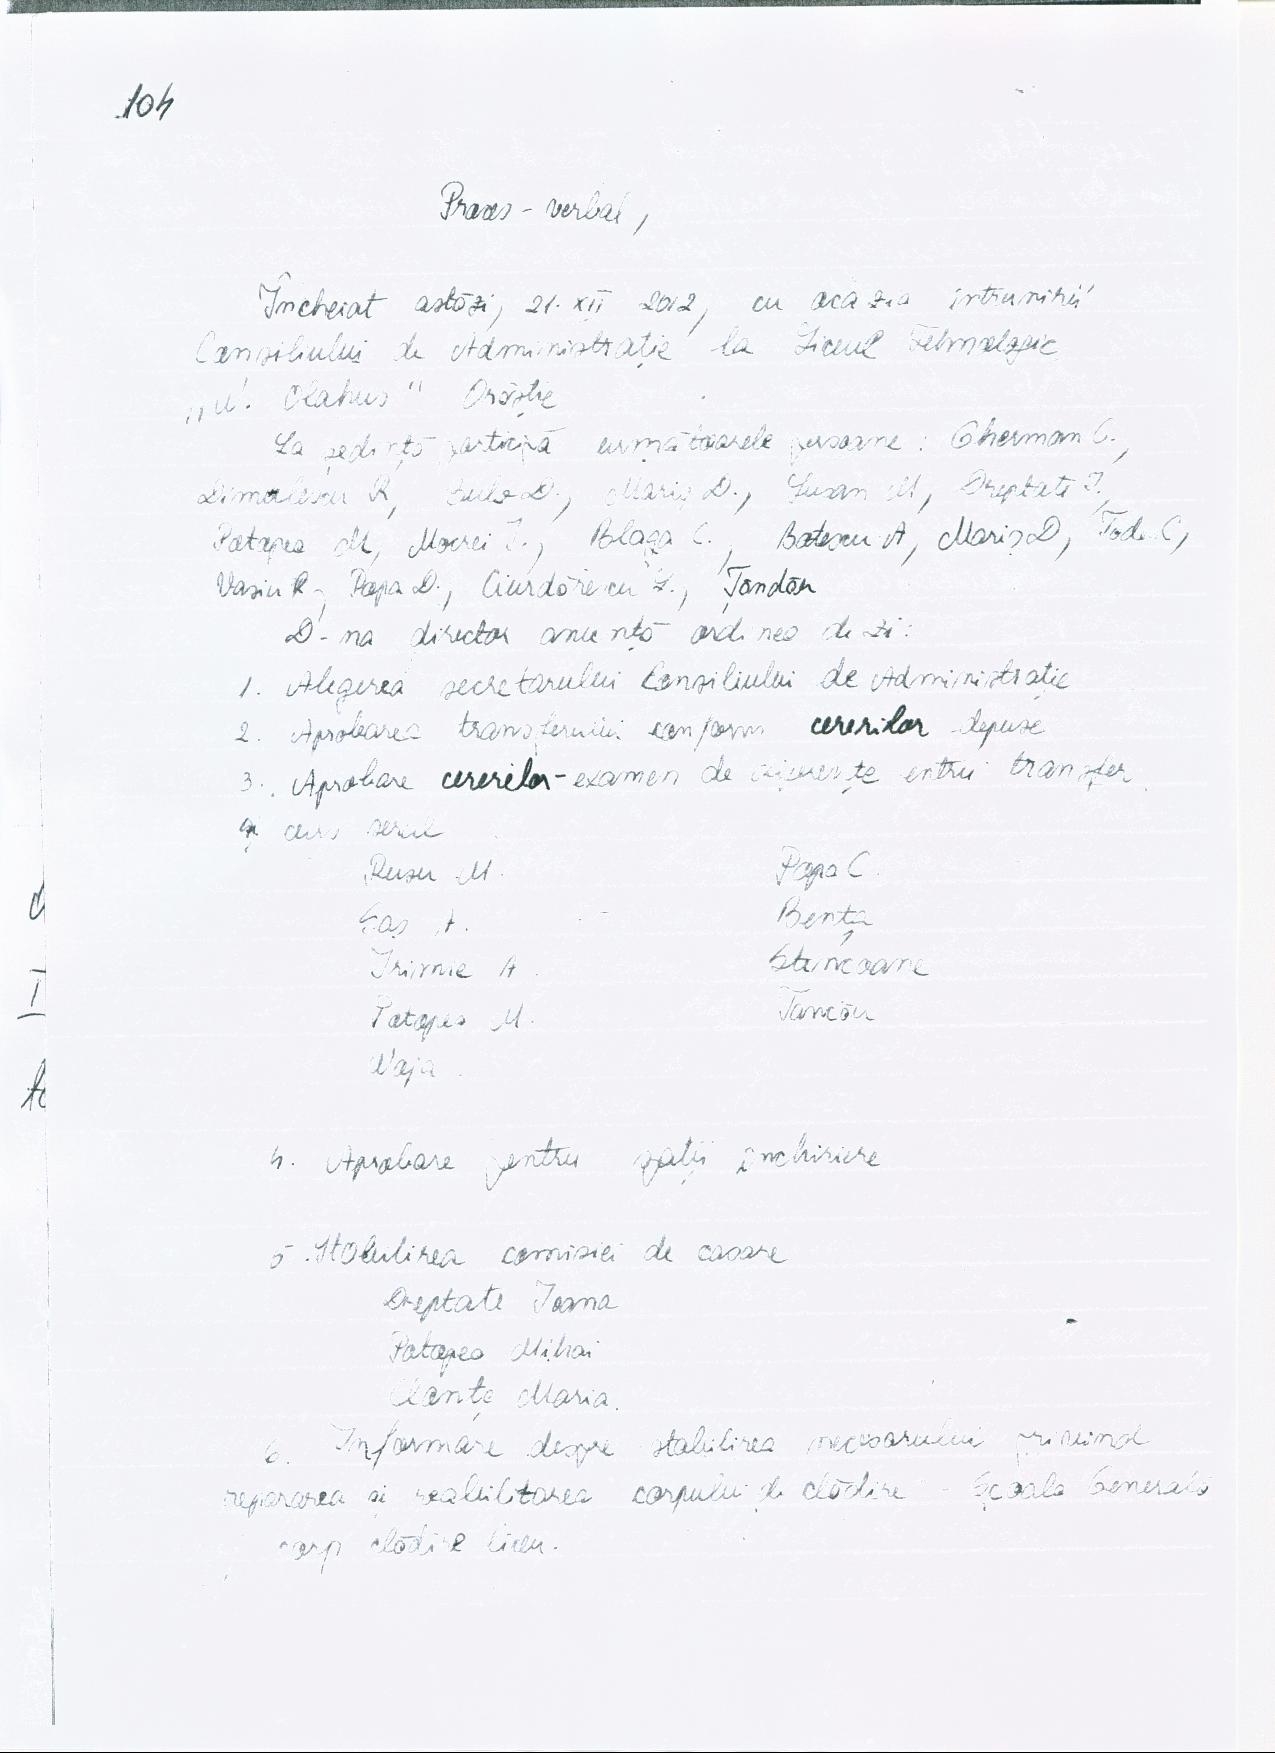 104
Proces-verbal,
Încheiat astăzi, 21.XII 2012, cu ocazia întrunirii
Consiliului de Administrație la Liceul Tehnologic
„N. Olahus" Orăștie
La ședință participă următoarele persoane: Gherman C.,
R, D., Mariș D., Susan M, Dreptate I.,
Potopea M, Mocrei I., Blaga C., Botescu A, Mariș D, Tode C,
Vasiu R, Popa D., Ciurdărescu L., Țăndău
D-na director anunță ordinea de zi:
1. Alegerea secretarului Consiliului de Administrație
2. Aprobarea transferului conform cererilor depuse
3. Aprobare cererilor-examen de diferențe entru transfer
și curs seral
Rusu M. Popa C.
A. Bența
Irimie A. Stăncoane
Potopea M. Tăncău
Vaja
4. Aprobare pentru spații închiriere
5. Stabilirea comisiei de casare
Dreptate Ioana
Potopea Mihai
Maria.
6. Informare despre stabilirea necesarului privind
repararea și reabilitarea corpului de clădire - Școala Generală
corp clădire liceu.